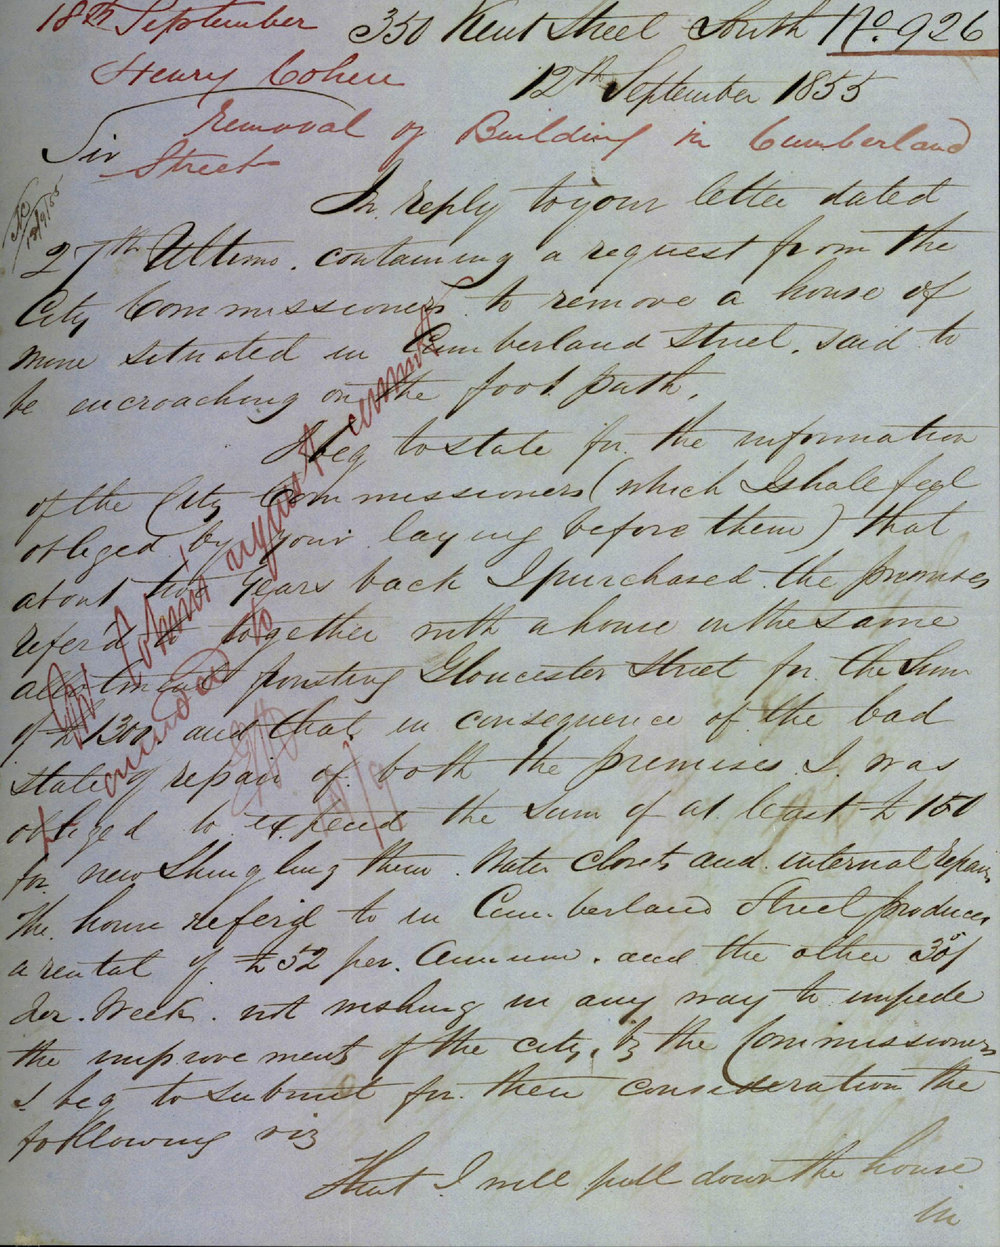 18th September 350 Kent Street South No. 926
Henry Cohen 12th September 1855
Removal of Building in Cumberland
Sir Street
In reply to your letter dated
27th Ultimo. containing a request from the
City Commissioners to remove a house of
mine situated in Cumberland Street. said to
be encroaching on the foot path.
I beg to state for the information
of the City Commissioners (which I shall feel
obliged by your laying before them) that
about two years back I purchased the premises
refer'd to together with a house in the same
allotment fronting Gloucester Street for the Sum
of £1300 and that in consequence of the bad
state of repair of both the premises I was
obliged to expend the sum of at least £150
for new Shingling them Water Closets and internal repairs
the house refer'd to in Cumberland Street produces
a rental of £52 per. Annum. and the other 30/
Per. Week. not wishing in any way to impede
the improvements of the city, by the Commissioners
I beg to submit for their consideration the
following viz
That I will pull down the house
in
Mr Cohen's
cannot
to